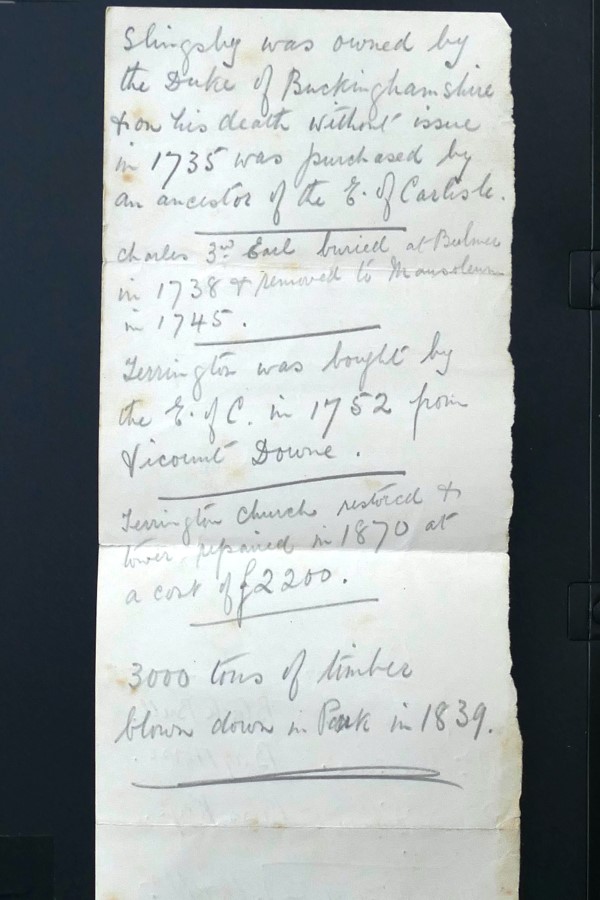 Slingsby was owned by
the Duke of Buckinghamshire
& on his death without issue
in 1735 was purchased by
an ancestor of the E. of Carlisle.
Charles 3rd Earl buried at Bulmer
in 1738 & removed to Mausoleum
in 1745.
Terrington was bought by
the E. of C. in 1752 from
Vicount Downe.
Terrington Church restored &
tower repaired in 1870 at
a cost of £2200.
3000 tons of timber
blown down in Park in 1839.